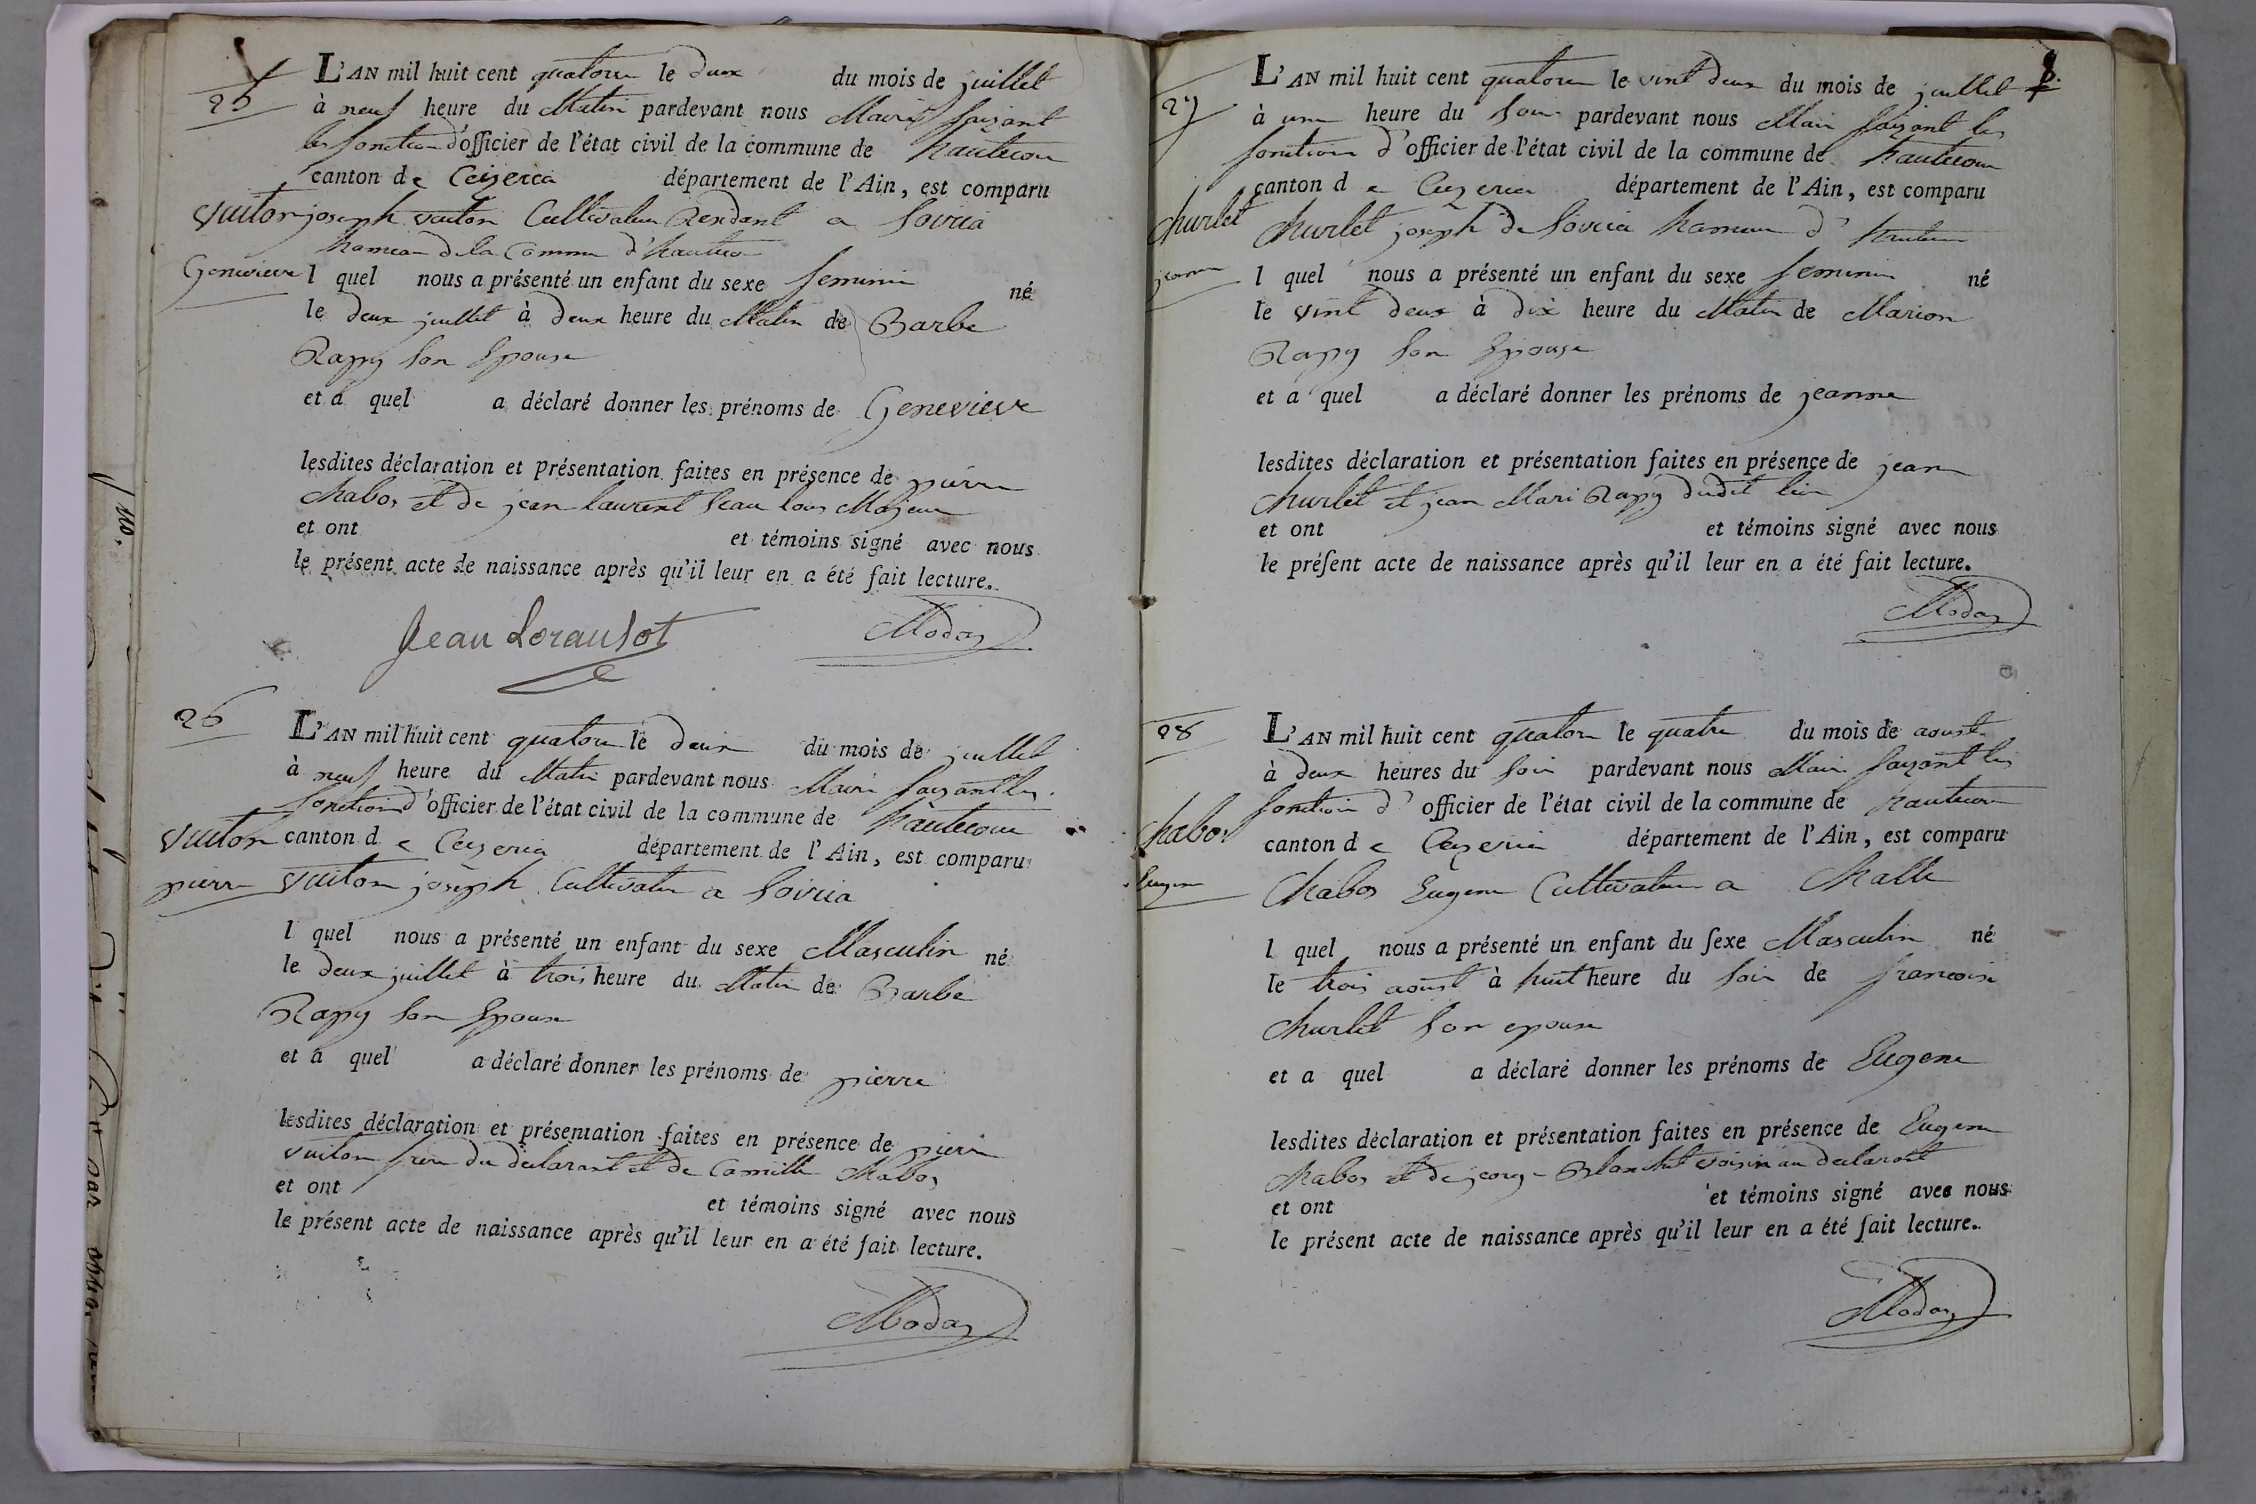 25
L'AN mil huit cent quatorze le deux du mois de juillet
à neuf heure du Matin pardevant nous Maire faizant
les fonction d'officier de l'état civil de la commune de hautecour
canton de Ceizeria département de l'Ain, est comparu
Vuiton joseph vuiton Cultivateur Rendant a Soiria
hameau de la Commune d'hautecour
Genevieve l quel nous a présenté un enfant du sexe feminin né
le deux juillet à deux heure du Matin de Barbe
Rapy son Epouse
et a quel a déclaré donner les prénoms de Genevieve
lesdites déclaration et présentation faites en présence de pierre
Chabos et de jean laurent
et ont et témoins signé avec nous
le présent acte de naissance après qu'il leur en a été fait lecture.
Jean Loransot Modas
26
L'AN mil huit cent quatorze le deux du mois de juillet
à neuf heure du Matin pardevant nous Maire faizant les
fonction d'officier de l'état civil de la commune de hautecour
Vuiton canton d e Ceizeria département de l'Ain, est comparu
pierre vuiton joseph Cultivateur a Soiria
l quel nous a présenté un enfant du sexe Masculin né
le deux juillet à trois heure du Matin de Barbe
Rapy son Epouse
et a quel a déclaré donner les prénoms de pierre
lesdites déclaration et présentation faites en présence de pierre
vuiton frere du declarant et de Camille Chabos
et ont et témoins signé avec nous
le présent acte de naissance après qu'il leur en a été fait lecture.
Modas
8.
27
L'AN mil huit cent quatorze le vint deux du mois de juillet
à une heure du soir pardevant nous Maire faizant les
fonction d'officier de l'état civil de la commune de hautecour
canton d e Ceyzeria département de l'Ain, est comparu
Churlet Churlet joseph de Soiria hameau d'hautecour
jeanne l quel nous a présenté un enfant du sexe feminin né
le vint deux à dix heure du Matin de Marion
Rapy son Epouse
et a quel a déclaré donner les prénoms de jeanne
lesdites déclaration et présentation faites en présence de jean
Churlet et jean Mari Rapy dudit lieu
et ont et témoins signé avec nous
le présent acte de naissance après qu'il leur en a été fait lecture.
Modas
28
L'AN mil huit cent quatorze le quatre du mois de aoust
à deux heures du soir pardevant nous Maire faizant les
fonction d'officier de l'état civil de la commune de hautecour
Chabos canton d e Ceyzeria département de l'Ain, est comparu
Eugene Chabos Eugene Cultivateur a Challe
l quel nous a présenté un enfant du sexe Masculin né
le trois aoust à huit heure du soir de francoise
Churlet son epouse
et a quel a déclaré donner les prénoms de Eugene
lesdites déclaration et présentation faites en présence de Eugene
Chabos et de jeorge Blanchet voisin au declarant
et ont et témoins signé avec nous
le présent acte de naissance après qu'il leur en a été fait lecture.
Modas